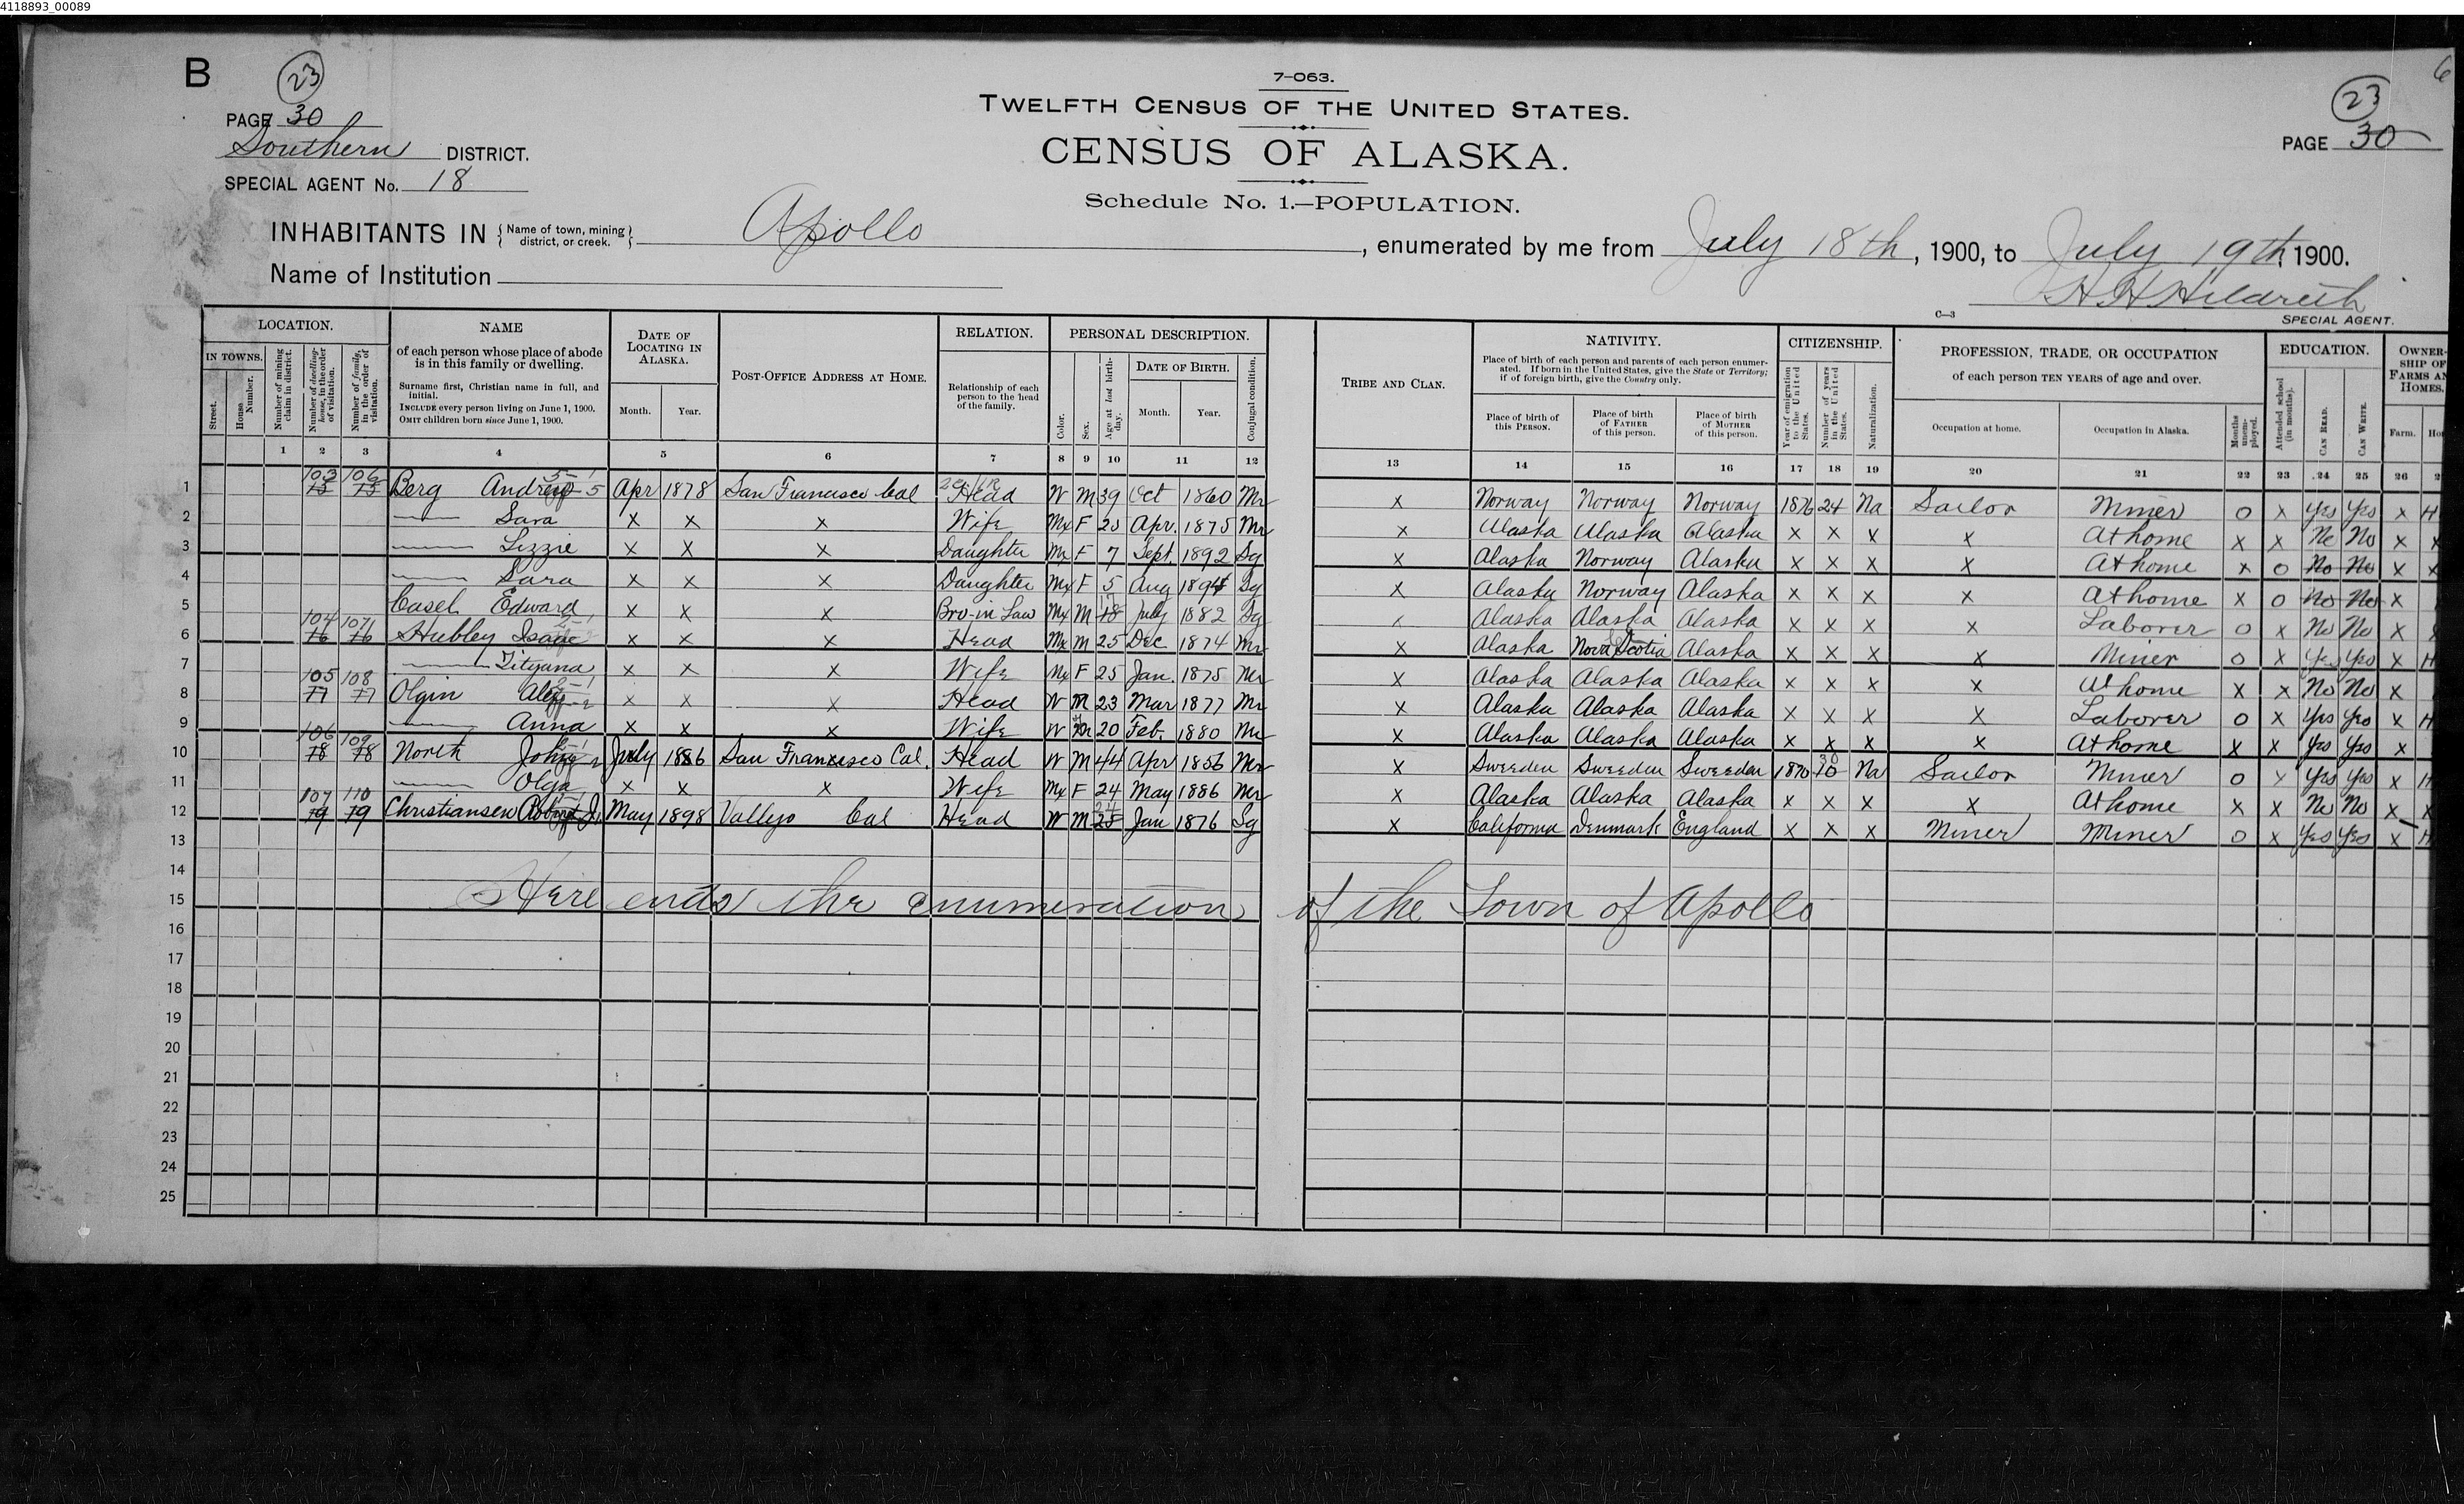 4118893_00089
B
23
23
6
7-063.
PAGE 30
TWELFTH CENSUS OF THE UNITED STATES.
PAGE 30
Southern DISTRICT.
CENSUS OF ALASKA.
SPECIAL AGENT No. 18
Schedule No. 1.—POPULATION.
INHABITANTS IN { Name of town, mining district, or creek. } Apollo, enumerated by me from July 18th, 1900, to July 19th, 1900.
Name of Institution
H H Hildreth
C—3
SPECIAL AGENT.
LOCATION. NAME DATE OF LOCATING IN ALASKA. POST-OFFICE ADDRESS AT HOME. RELATION. PERSONAL DESCRIPTION. TRIBE AND CLAN. NATIVITY. CITIZENSHIP. PROFESSION, TRADE, OR OCCUPATION EDUCATION. OWNER-SHIP OF FARMS AN HOMES.
IN TOWNS. Street. House Number. Number of mining claim in district. Number of dwelling-house, in the order of visitation. Number of family, in the order of visitation.
of each person whose place of abode is in this family or dwelling.
Surname first, Christian name in full, and initial.
INCLUDE every person living on June 1, 1900.
OMIT children born since June 1, 1900.
Month. Year.
Relationship of each person to the head of the family.
Color. Sex. Age at last birthday. DATE OF BIRTH. Month. Year. Conjugal condition.
Place of birth of each person and parents of each person enumerated. If born in the United States, give the State or Territory; if of foreign birth, give the Country only.
Place of birth of this PERSON. Place of birth of FATHER of this person. Place of birth of MOTHER of this person.
Year of emigration to the United States. Number of years in the United States. Naturalization.
of each person TEN YEARS of age and over.
Occupation at home. Occupation in Alaska. Months unemployed.
Attended school (in months). CAN READ. CAN WRITE. Farm. Ho
1 2 3 4 5 6 7 8 9 10 11 12 13 14 15 16 17 18 19 20 21 22 23 24 25 26 2
1 103 15 106 15 Berg Andrew 5 Apr 1878 San Francisco Cal Head W M 39 Oct 1860 Mr x Norway Norway Norway 1876 24 Na Sailor Miner o x Yes Yes x H
2 Sara x x x Wife Mx F 25 Apr. 1875 Mr x Alaska Alaska Alaska x x x x At home x x No No x x
3 Lizzie x x x Daughter Mx F 7 Sept. 1892 Sg x Alaska Norway Alaska x x x x At home x o No No x x
4 Sara x x x Daughter Mx F 5 Aug 1894 Sg x Alaska Norway Alaska x x x x At home x o No No x
5 Casel Edward x x x Bro-in Law Mx M 17 18 July 1882 Sg x Alaska Alaska Alaska x x x x Laborer o x No No x
6 104 16 107 16 Hubley Isaac x x x Head Mx M 25 Dec 1874 Mr x Alaska Nova Scotia Alaska x x x x Miner o x Yes Yes x H
7 Tityana x x x Wife Mx F 25 Jan. 1875 Mr x Alaska Alaska Alaska x x x x At home x x No No x
8 105 17 108 17 Olgin Alex x x x Head W M 23 Mar 1877 Mr x Alaska Alaska Alaska x x x x Laborer o x Yes Yes x H
9 Anna x x x Wife W 20 Feb. 1880 Mr x Alaska Alaska Alaska x x x x At home x x Yes Yes x
10 106 18 109 18 North John July 1886 San Francisco Cal. Head W M 44 Apr 1856 Mr x Sweeden Sweeden Sweeden 1870 30 Na Sailor Miner o x Yes Yes x H
11 Olga x x x Wife Mx F 24 May 1886 Mr x Alaska Alaska Alaska x x x x At home x x No No x x
12 107 19 110 19 Christiansen Robert J. May 1898 Vallejo Cal Head W M 24 Jan 1876 Sg x California Denmark England x x x Miner Miner o x Yes Yes x H
13
14
15 Here ends the enumeration of the Town of Apollo
16
17
18
19
20
21
22
23
24
25